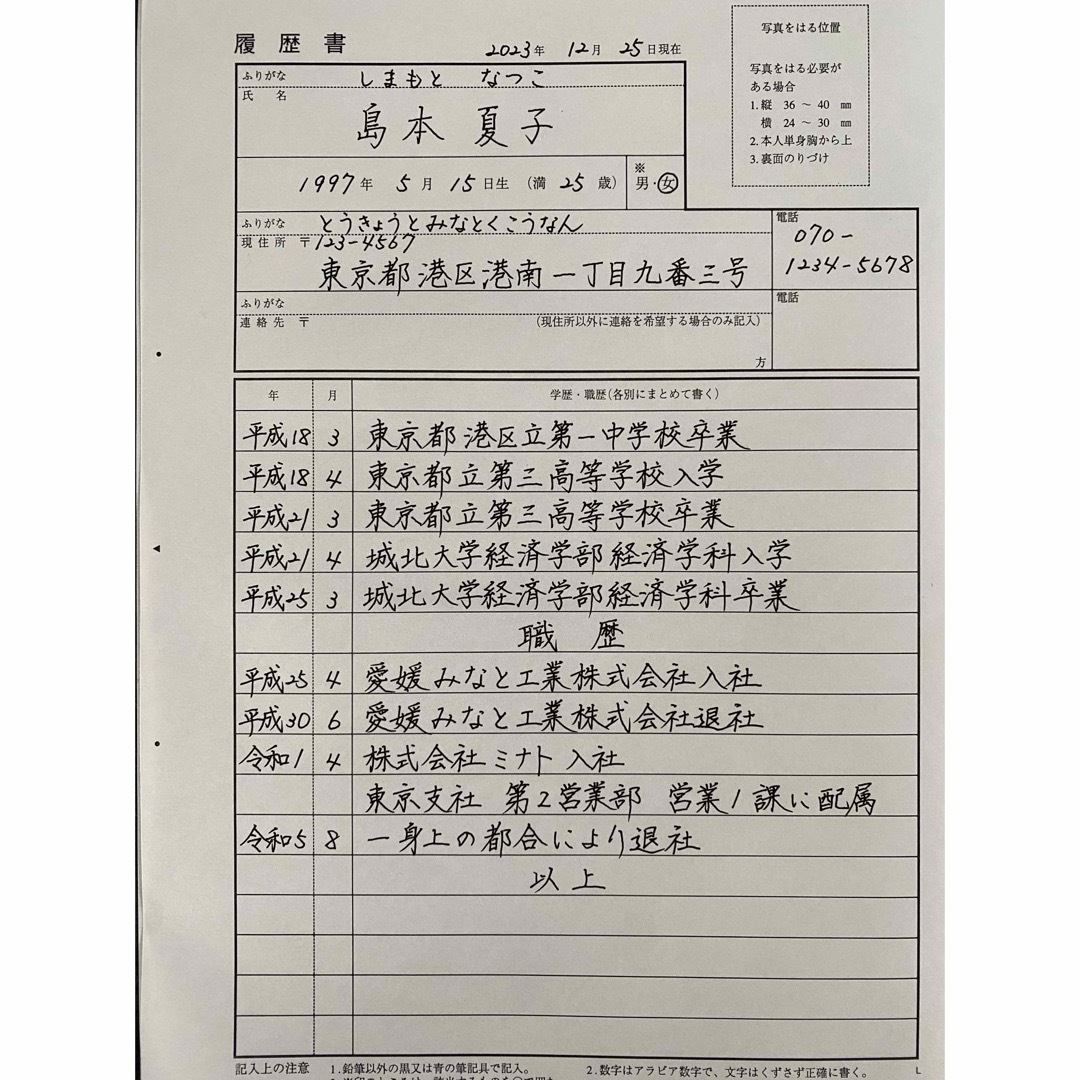 履歴書
2023年 12月 25日現在
写真をはる位置
写真をはる必要が
ある場合
1.縦 36 ～ 40 ㎜
横 24 ～ 30 ㎜
2.本人単身胸から上
3.裏面のりづけ
ふりがな しまもと なつこ
氏名
島本 夏子
1997年 5月 15日生 (満 25 歳) ※
男・女
ふりがな とうきょうとみなとくこうなん
現住所 〒123-4567
東京都港区港南一丁目九番三号
電話
070-
1234-5678
ふりがな
連絡先 〒 (現住所以外に連絡を希望する場合のみ記入)
方
電話
年 月 学歴・職歴(各別にまとめて書く)
平成18 3 東京都港区立第一中学校卒業
平成18 4 東京都立第三高等学校入学
平成21 3 東京都立第三高等学校卒業
平成21 4 城北大学経済学部経済学科入学
平成25 3 城北大学経済学部経済学科卒業
職 歴
平成25 4 愛媛みなと工業株式会社入社
平成30 6 愛媛みなと工業株式会社退社
令和1 4 株式会社ミナト入社
東京支社 第2営業部 営業1課に配属
令和5 8 一身上の都合により退社
以上
記入上の注意 1.鉛筆以外の黒又は青の筆記具で記入。 2.数字はアラビア数字で、文字はくずさず正確に書く。
L